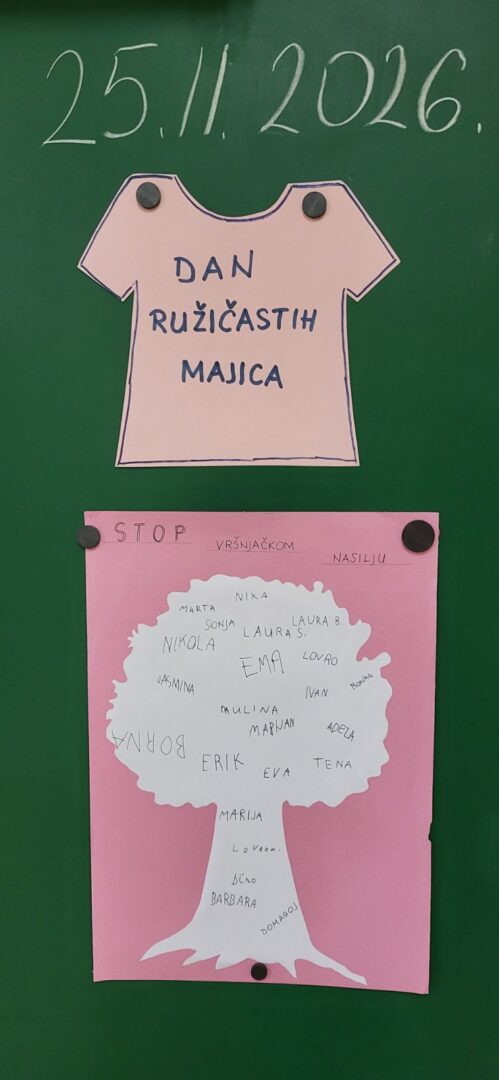 25.11.2026.
DAN
RUŽIČASTIH
MAJICA
STOP VRŠNJAČKOM NASILJU
NIKA
MARTA
SONJA
LAURA B.
NIKOLA
LAURA S.
EMA
LOVRO
JASMINA
IVAN
Monika
PAULINA
MARIJAN
ADELA
BORNA
ERIK
EVA
TENA
MARIJA
BARBARA
DOMAGOJ